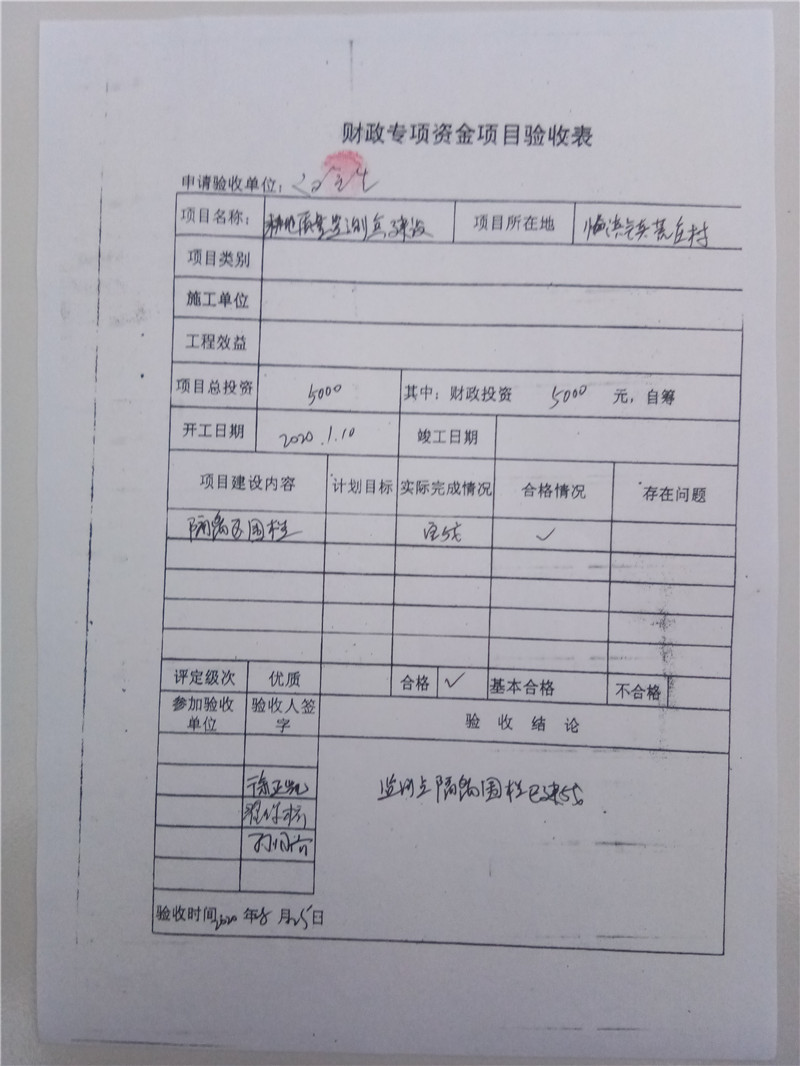 财政专项资金项目验收表
申请验收单位：
项目名称： 耕地质量监测点建设 项目所在地
项目类别
施工单位
工程效益
项目总投资 5000 其中：财政投资 5000 元，自筹
开工日期 2020.1.10 竣工日期
项目建设内容 计划目标 实际完成情况 合格情况 存在问题
隔离区围栏 完成 ✓
评定级次 优质 合格 ✓ 基本合格 不合格
参加验收单位 验收人签字 验收结论
监测点隔离围栏已建成
验收时间2020年8月25日